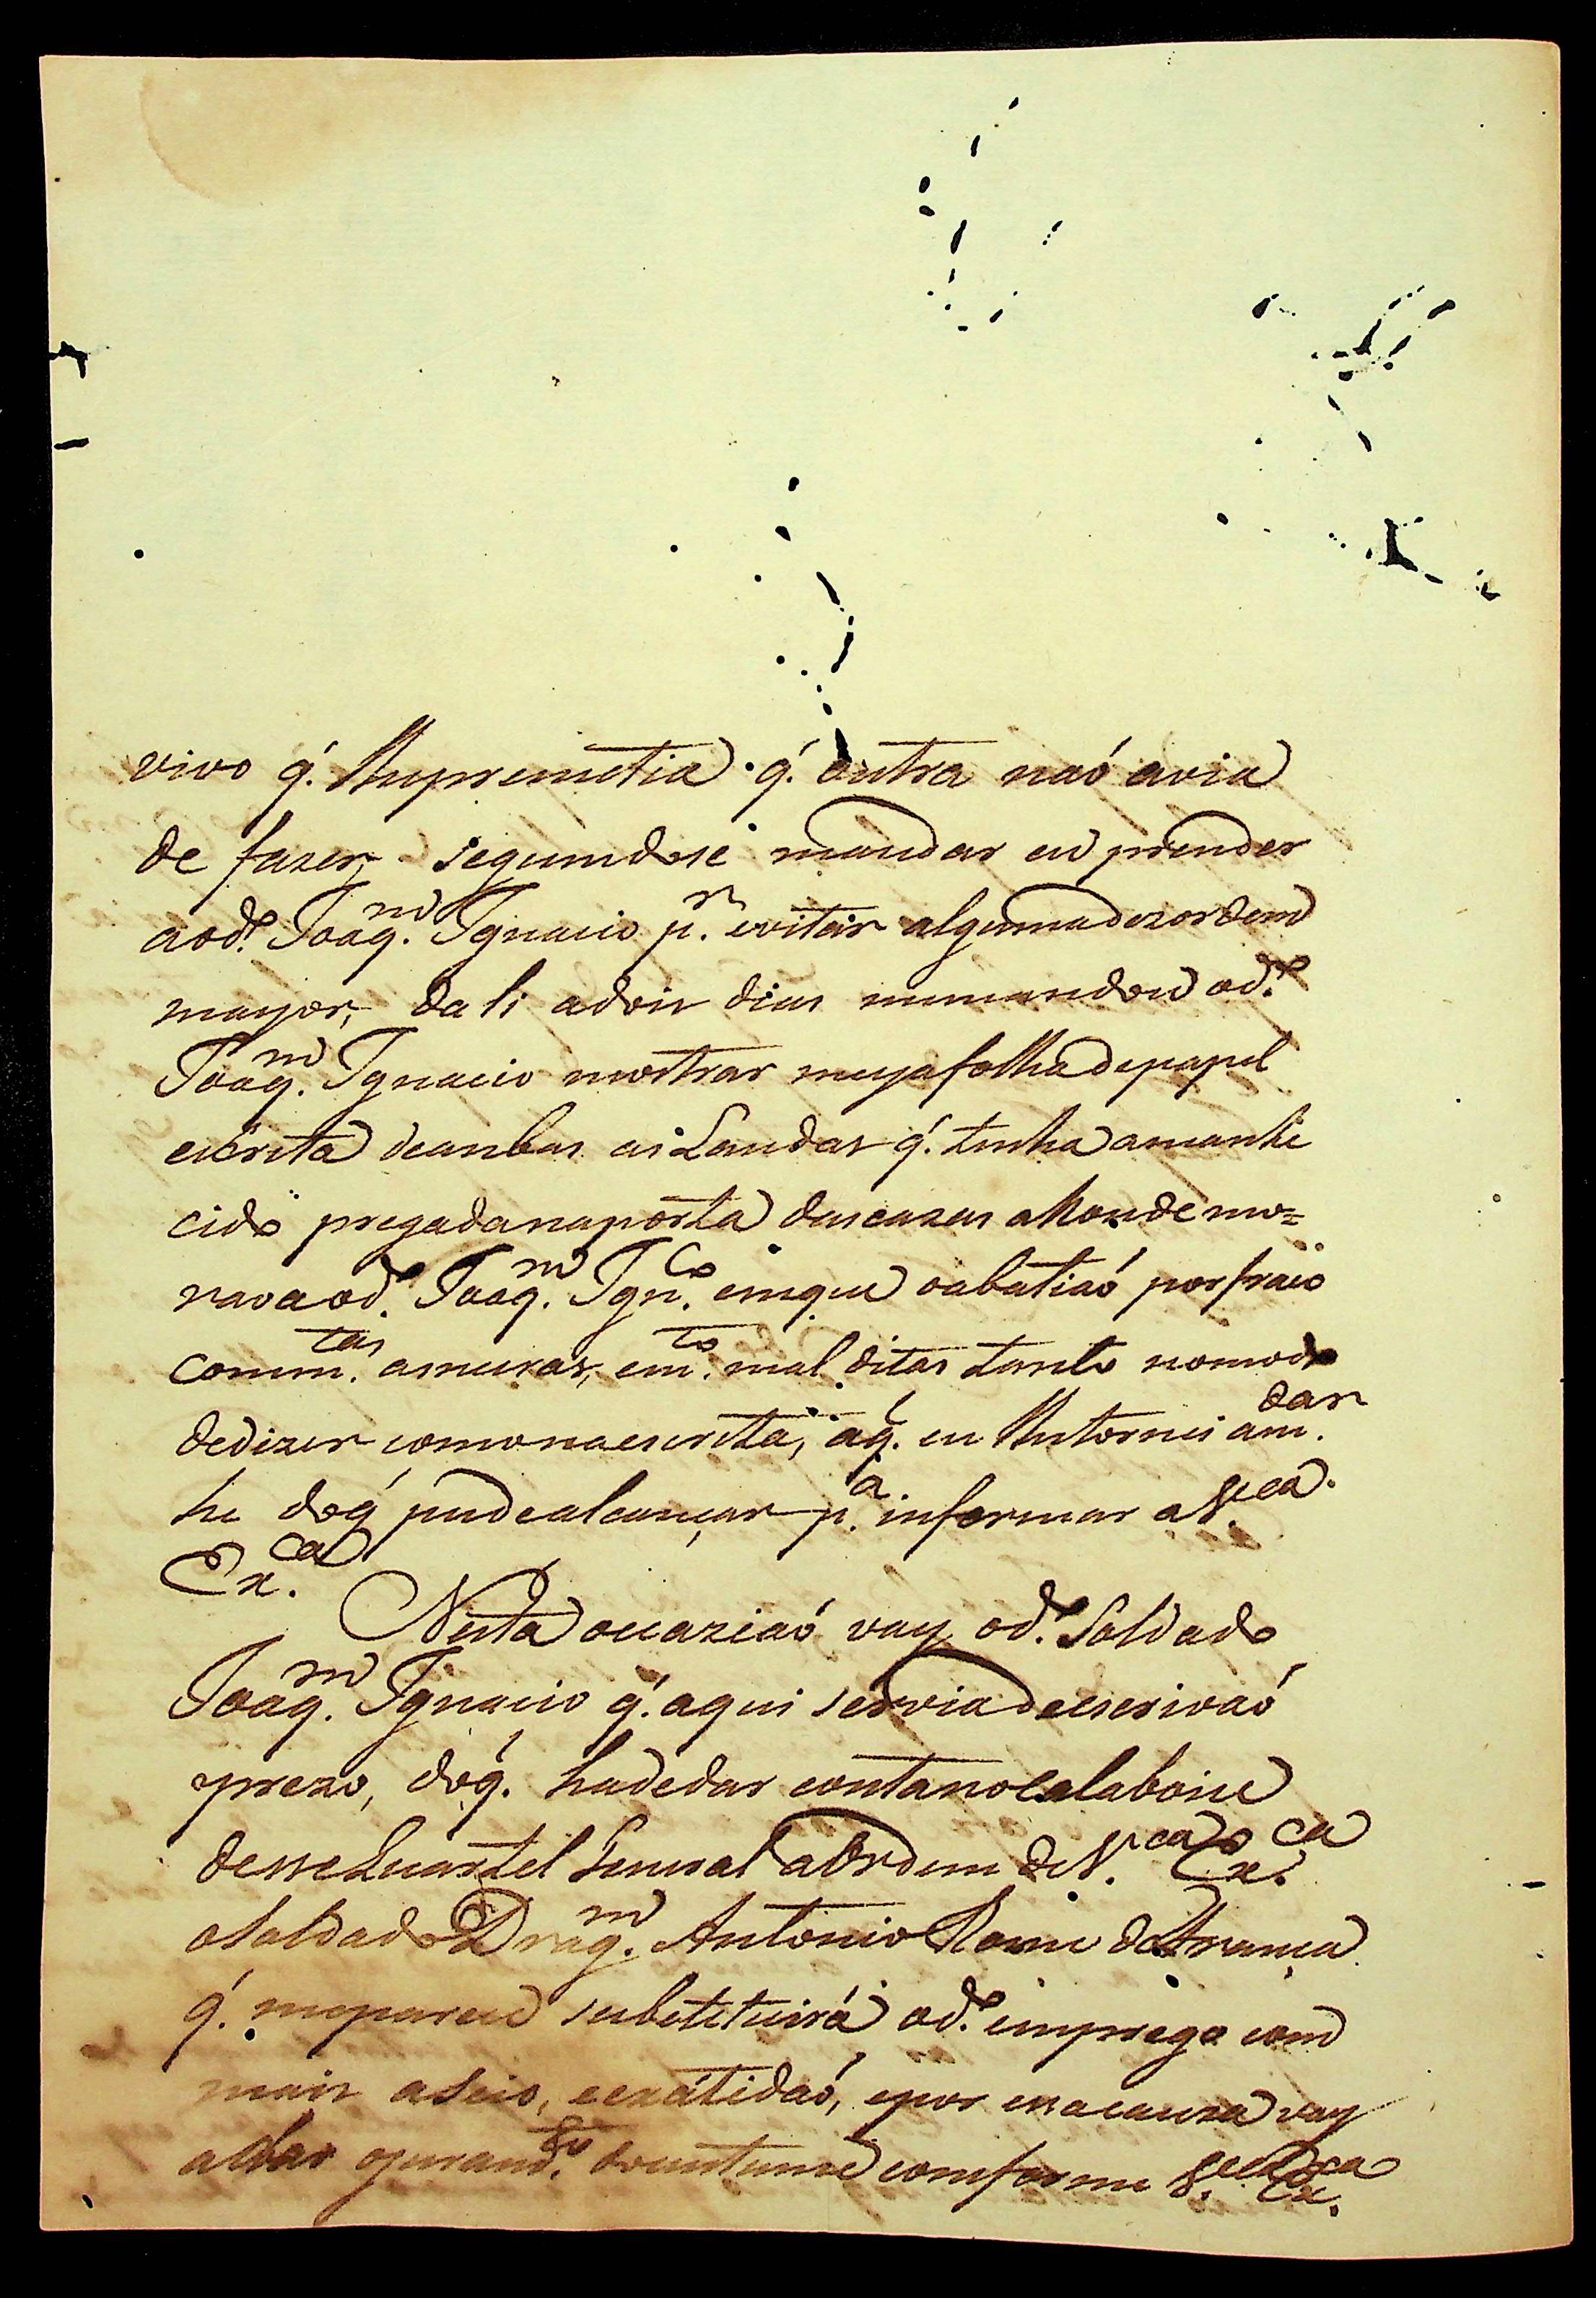 vivo q́. lhe premetia q́. outra naó avia
de fazer, segundose mandar eu prender
aod.º Joaq.m Ignacio p.r evitar algumadezordem
mayor, dali adois dias memandou od.º
Joaq.m Ignacio mostrar meyafolhadepapel
escrita deanbas as Laudas q́. tinha amanhe
cido pregadanaporta dascazas ahondemo=
ravaaod.º Joaq.m Ign.co emque oabatiaó porfraco
comm.tas asneiras, em.to mal ditas tanto nomodo
dedizer comonaescrita, aq́. eu
he doq́ pudealcançar p.a informar aV.ca
Ex.ca
Nesta occaziaó vay od.º Soldado
Joaq.m Ignacio q́. aqui serviadeescrivaó
prezo, doq́. hadedar contanocalaboice
desseQuartel General aordem deV.ca Ex.ca
oSoldado Drag.m Antonio de França
q́. mepareceu subctetuirá od.º emprego com
mais aseio, eezátidaó, epor essacauza vay
adar ojuram.to docustume comforme V.ca Ex.ca